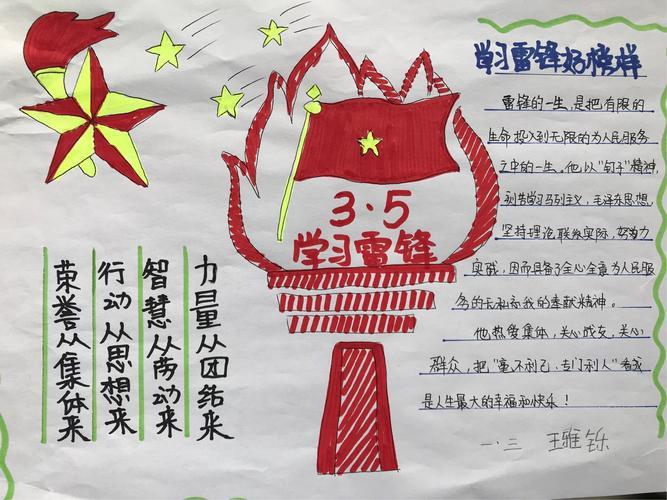 学习雷锋好榜样
3·5
学习雷锋
力量从团结来
智慧从劳动来
行动从思想来
荣誉从集体来
雷锋的一生，是把有限的
生命投入到无限的为人民服务
之中的一生。他以“钉子”精神，
刻苦学习马列主义，毛泽东思想，
坚持理论联系实际，努力
实践，因而具备了全心全意为人民服
务的大公无私的奉献精神。
他热爱集体，关心战友，关心
群众，把“毫不利己、专门利人”看成
是人生最大的幸福和快乐！
一·三 王雅铄